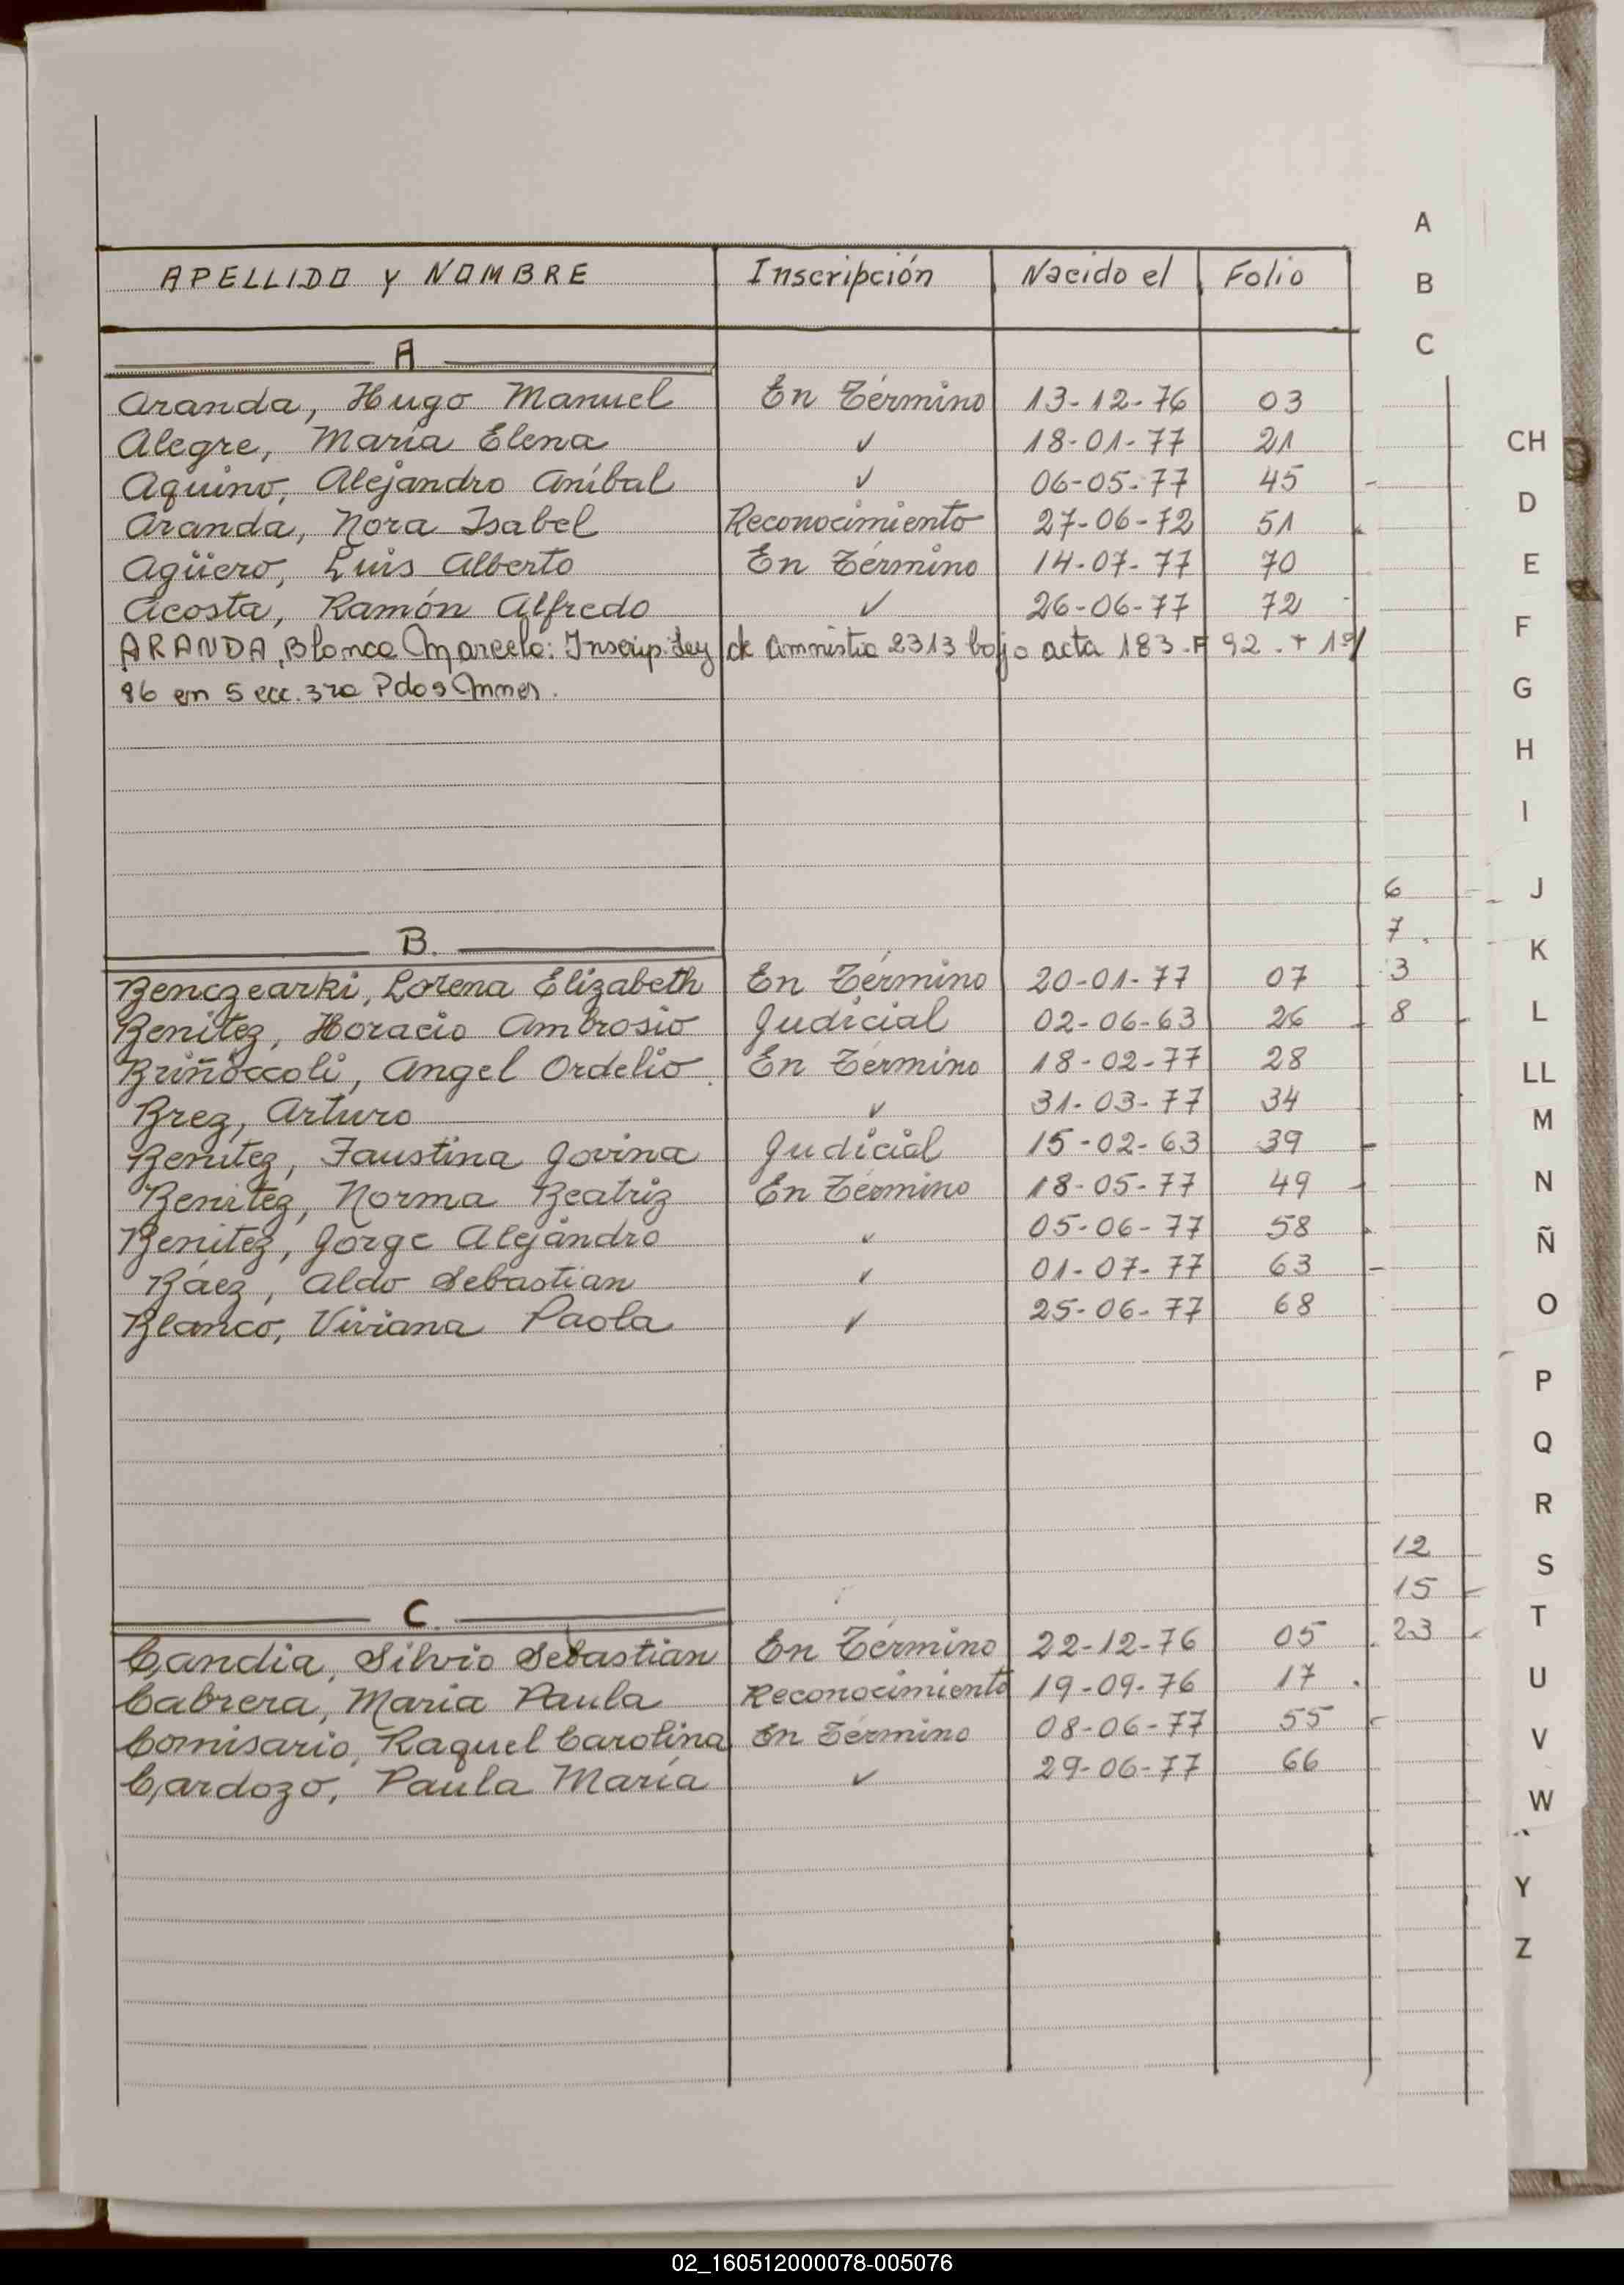 APELLIDO Y NOMBRE Inscripción Nacido el Folio
A
Aranda, Hugo Manuel En Término 13-12-76 03
Alegre, María Elena ✓ 18-01-77 21
Aquino, Alejandro Aníbal ✓ 06-05-77 45
Aranda, Nora Isabel Reconocimiento 27-06-72 51
Agüero, Luis Alberto En Término 14-07-77 70
Acosta, Ramón Alfredo ✓ 26-06-77 72
ARANDA, Blanca Marcela: Inscrip. Ley de Amnistia 2313 bajo acta 183-F 92. T 1º/
86 en Secc. 3ra Pdos
B.
Benczearki, Lorena Elizabeth En Término 20-01-77 07
Benitez, Horacio Ambrosio Judicial 02-06-63 26
Briñoccoli, Angel Ordelio En Término 18-02-77 28
Brez, Arturo ✓ 31-03-77 34
Benitez, Faustina Jovina Judicial 15-02-63 39
Benitez, Norma Beatriz En Término 18-05-77 49
Benitez, Jorge Alejandro ✓ 05-06-77 58
Báez, Aldo Sebastian ✓ 01-07-77 63
Blanco, Viviana Paola ✓ 25-06-77 68
C.
Candia, Silvio Sebastian En Término 22-12-76 05
Cabrera, Maria Paula Reconocimiento 19-09-76 17
Comisario, Raquel Carolina En Término 08-06-77 55
Cardozo, Paula María ✓ 29-06-77 66
6
7
3
8
12
15
23
A
B
C
CH
D
E
F
G
H
I
J
K
L
LL
M
N
Ñ
O
P
Q
R
S
T
U
V
W
Y
Z
02_160512000078-005076